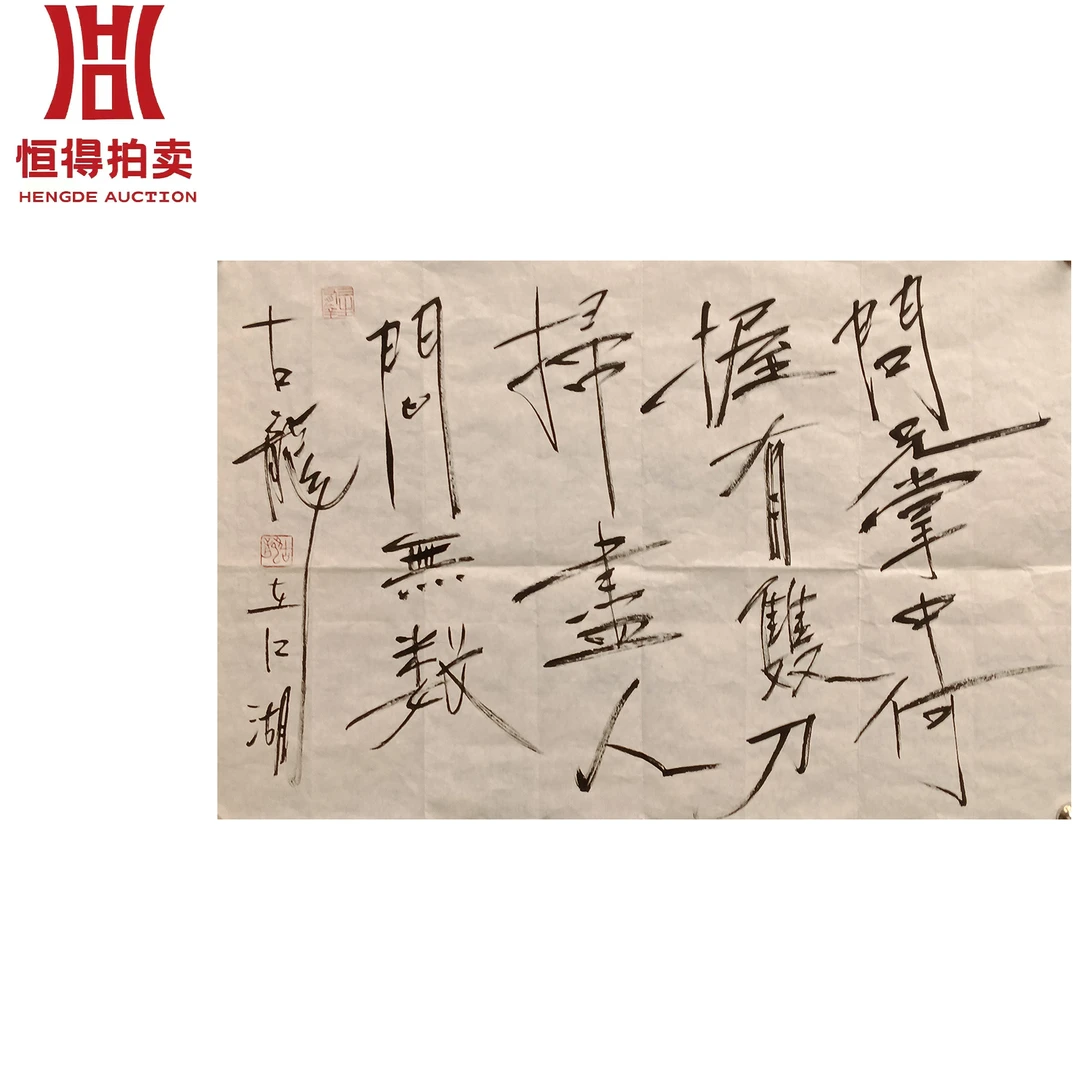 恒得拍卖
HENGDE AUCTION
問兄掌中何
握有雙刀
掃盡人
間無數
古龍
在江湖